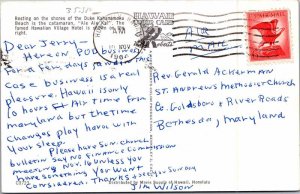 3525A
Resting on the shores of the Duke Kahanamoku
Beach is the catamaran, "Ale Ale Kai". The
famed Hawaiian Village Hotel is shown on the
right.
HAWAII
POST CARD
AIR
MAIL
AM
NOV
196
Dear Jerry,
Here on P.O.D business
for a few days and in this
case business is a real
pleasure. Hawaii is only
10 hours of Air time from
Maryland but the time
changes play havoc with
your sleep.
Please have Sun. church
bulletin say No Finance Commission
meeting Nov. 16 unless you
have something you want
Considered. Thanks & see you Sunday
Jim Wilson
Rev Gerald Ackerman
St. Andrews Methodist Church
Co. Goldsboro & River Roads
Bethesda, Maryland
Distributed by Movie Supply of Hawaii, Honolulu